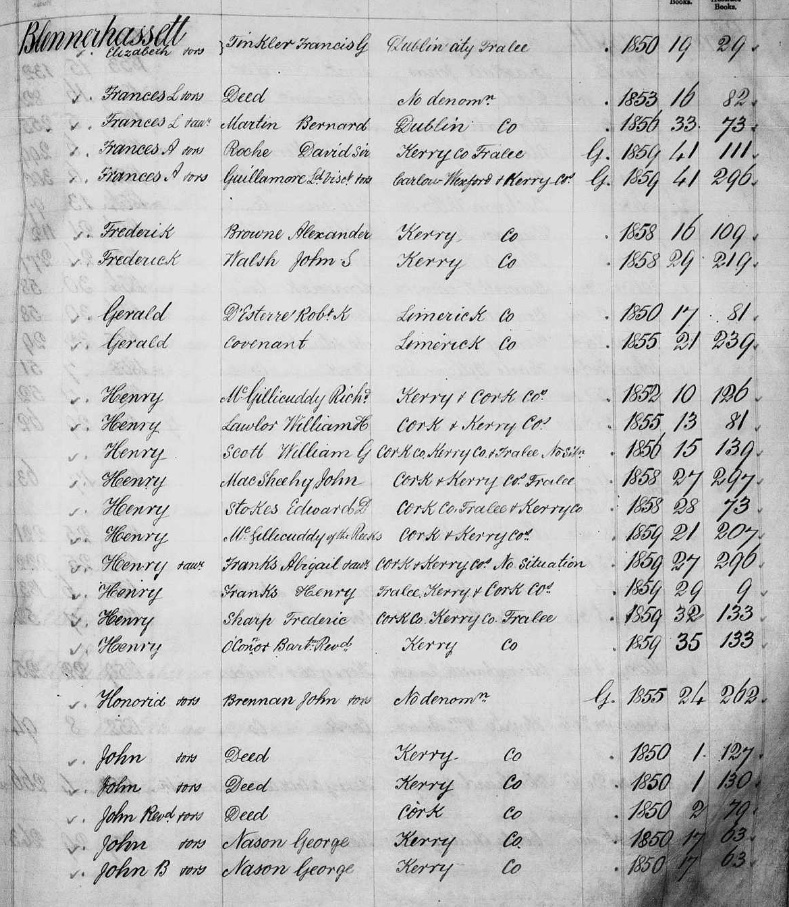 Books. Books.
Blennerhassett
Elizabeth vors Tinkler Francis G Dublin city Tralee . 1850 19 29
Frances L vors Deed No denomn . 1853 16 82
Frances L rawr Martin Bernard Dublin Co . 1856 33 73
Frances A vors Roche David Sir Kerry Co Tralee G. 1859 41 111
Frances A vors Guillamore Ld. Visct vors Carlow Wexford & Kerry Cos. G. 1859 41 296
Frederik Browne Alexander Kerry Co . 1858 16 109
Frederick Walsh John S Kerry Co . 1858 29 219
Gerald D'Esterre Robt K Limerick Co . 1850 17 81
Gerald Covenant Limerick Co . 1855 21 239
Henry McGillicuddy Richd. Kerry & Cork Cos. 1852 10 126
Henry Lawlor William H Cork & Kerry Cos 1855 13 81
Henry Scott William G Cork Co, Kerry Co & Tralee No Sitn 1856 15 139
Henry MacSheehy John Cork & Kerry Cos. Tralee 1858 27 297
Henry Stokes Edward D Cork Co. Tralee & Kerry Co 1858 28 73
Henry McGillicuddy of the Reeks Cork & Kerry Cos. 1859 21 207
Henry rawr Franks Abigail rawr Cork & Kerry Cos. No Situation 1859 27 296
Henry Franks Henry Tralee, Kerry & Cork Cos. 1859 29 9
Henry Sharp Frederic Cork Co. Kerry Co. Tralee 1859 32 133
Henry O'Conor Bartw Revd. Kerry Co 1859 35 133
Honorid vors Brennan John vors No denomn. G. 1855 24 262
John vors Deed Kerry Co . 1850 1 127
John vors Deed Kerry Co . 1850 1 130
John Revd vors Deed Cork Co . 1850 2 79
John vors Nason George Kerry Co . 1850 17 63
John B vors Nason George Kerry Co . 1850 17 63